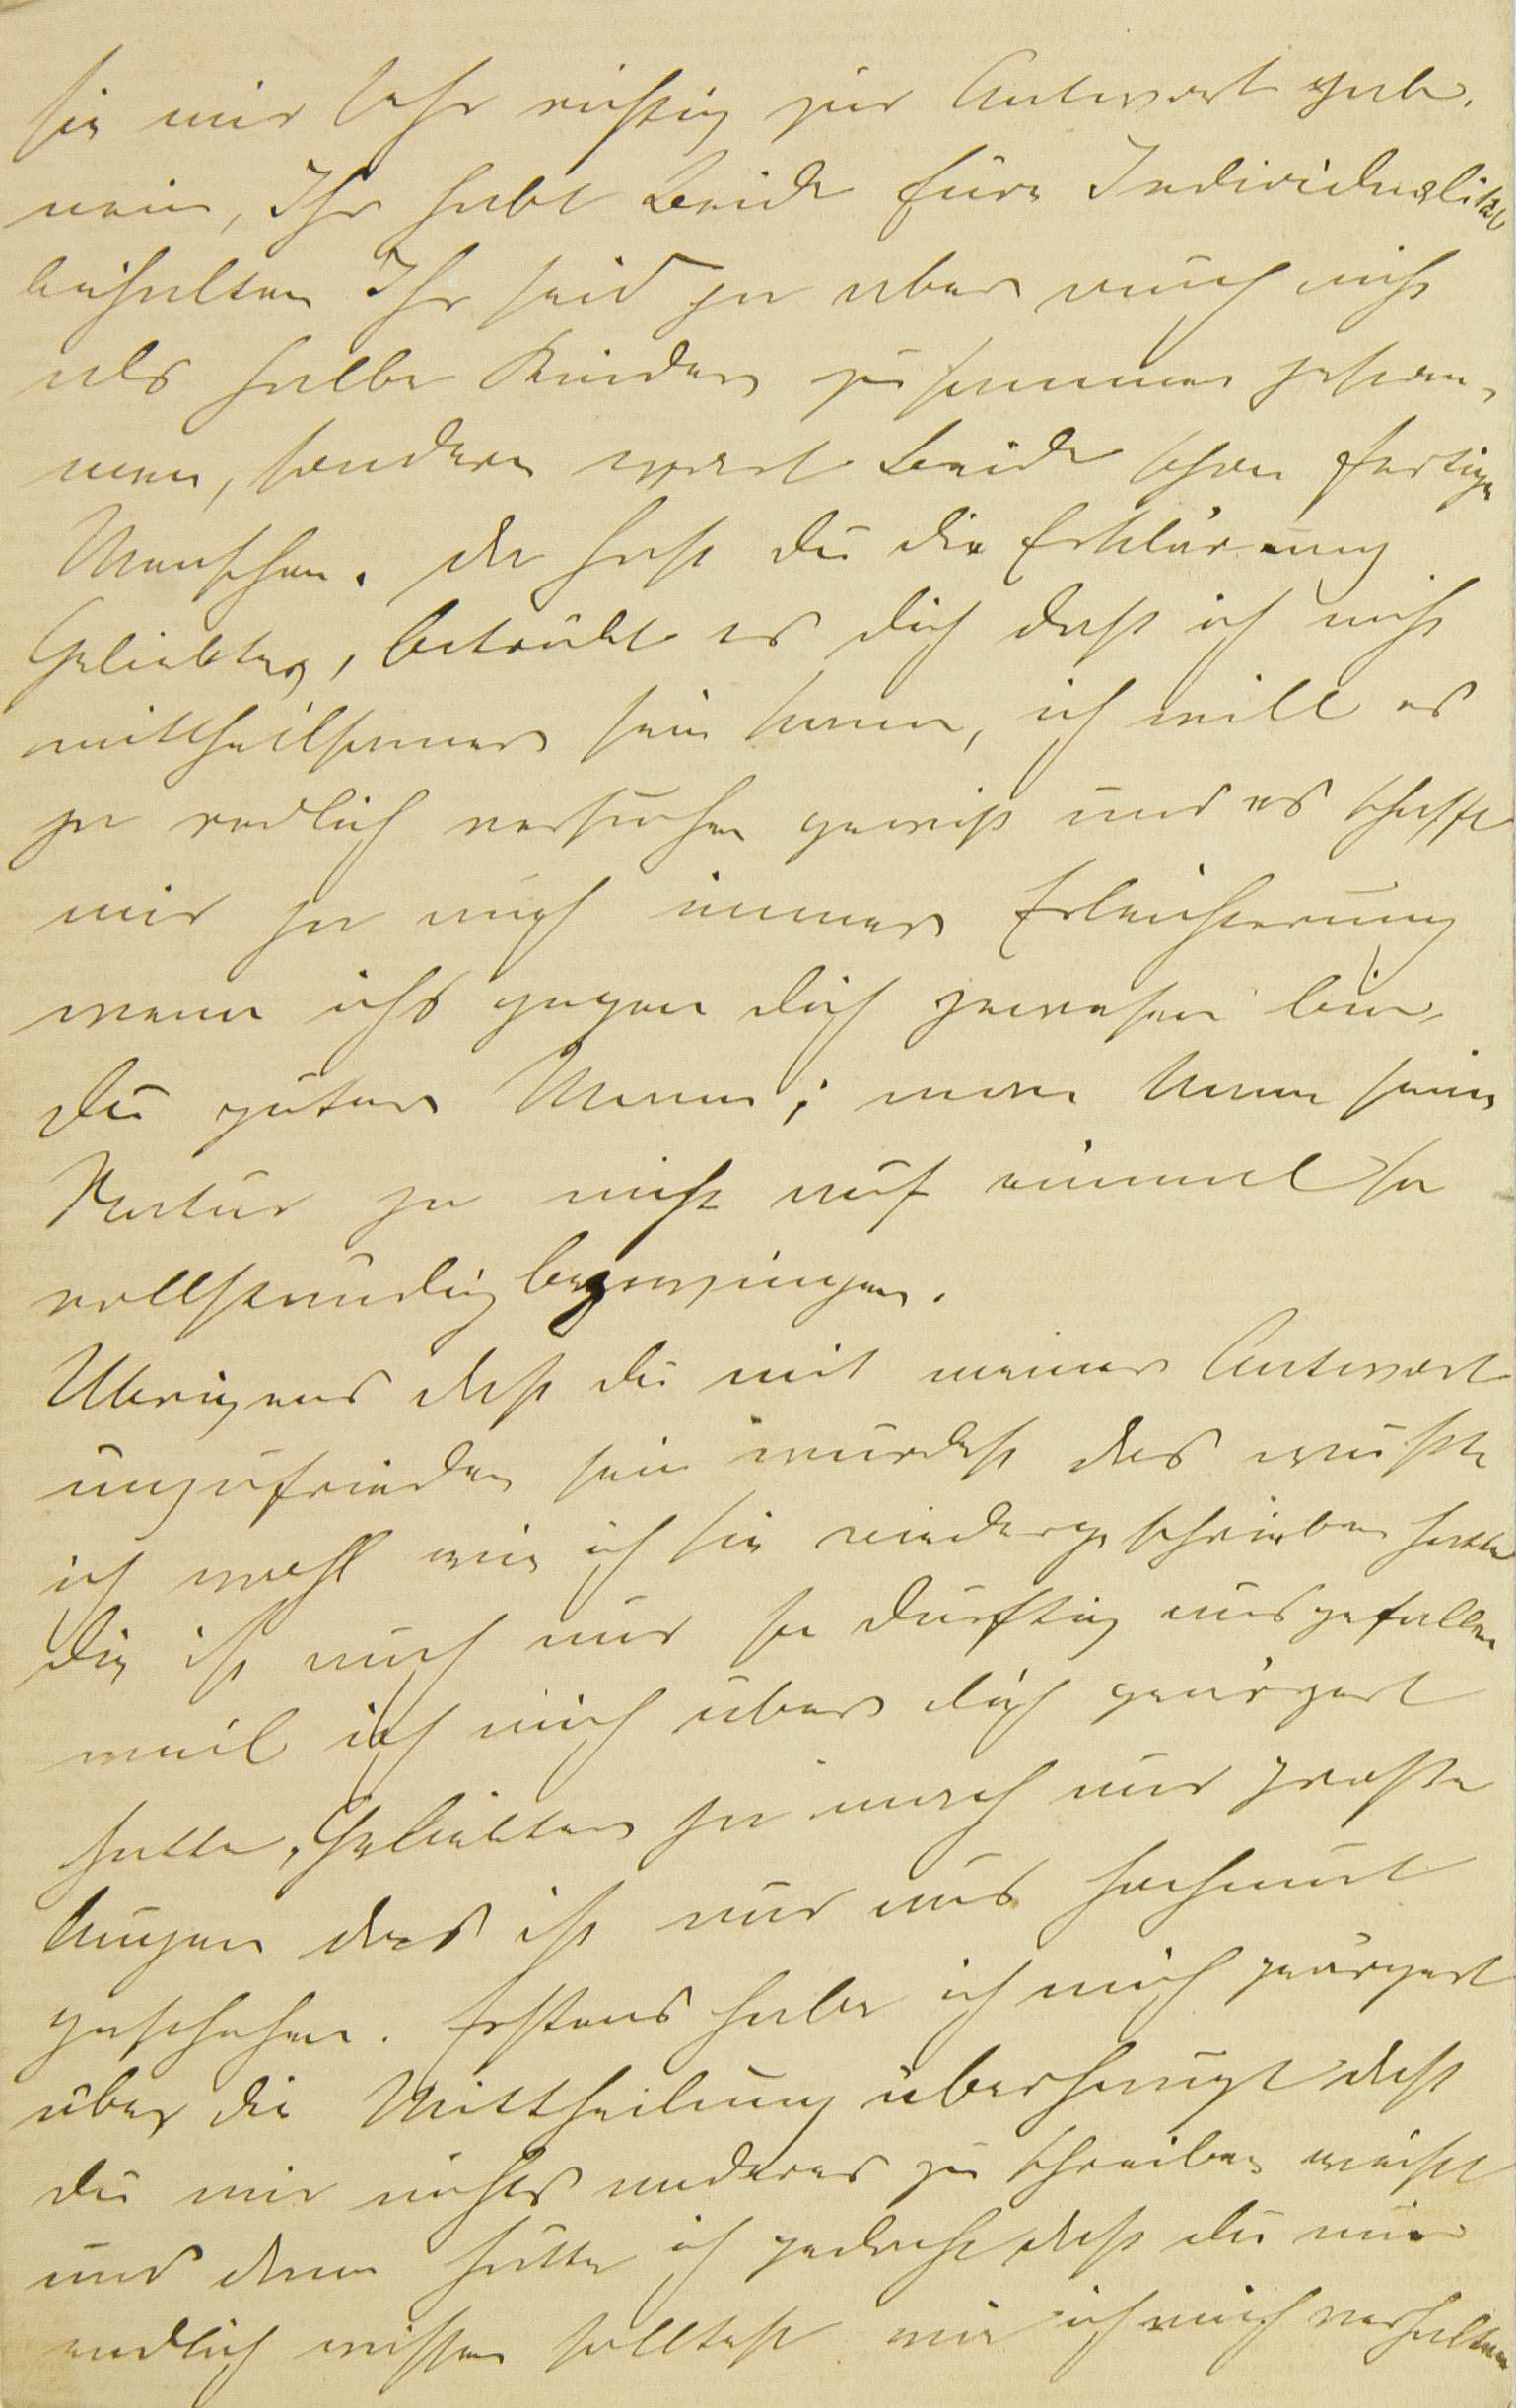 sie mir sehr richtig zur Antwort gab.
nein, Ihr habt Beide Eure Individualität
beihalten Ihr seid ja aber auch nicht
als halbe Kinder zusammen gekom-
men, sondern wart Beide schon fertige
Menschen. da hast du die Erklärung
Geliebter, betrübt es dich daß ich nicht
mittheilsamer sein kann, ich will es
ja redlich versuchen gewiß und es schafft
mir ja auch immer Erleichterung
wenn ichs gegen dich gewesen bin,
du guter Mann; man kann seine
Natur ja nicht auf einmal so
vollständig bezwingen.
Übrigens daß du mit meiner Antwort
unzufrieden sein würdest das wußte
ich wohl wie ich sie niedergeschrieben hatte
die ist auch nur so dürftig ausgefallen
weil ich mich über dich geärgert
hatte, Geliebter ja mach nur große
Augen das ist nur aus Hochmut
geschehen. Erstens habe ich mich geärgert
über die Mittheilung überhaupt daß
du mir nichts anderes zu schreiben weißt
und dann hätte ich gedacht daß du nun
endlich wissen solltest wie ich mich verhalten